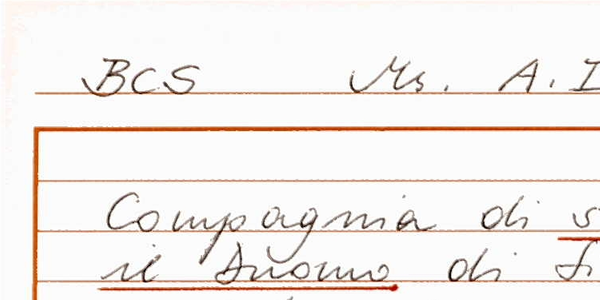 BCS Ms. A. I
Compagnia di s
il Duomo di Si